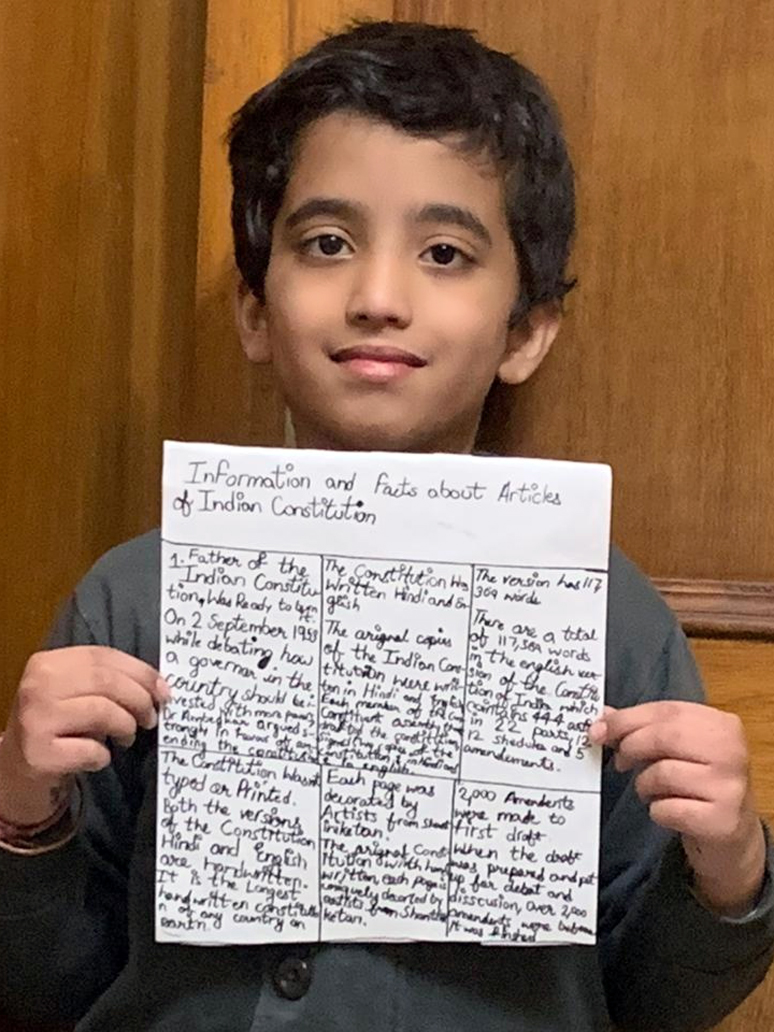 Information and facts about Articles
of Indian Constitution
1. Father of the
Indian Constitu
tion, Was Ready to burn
it.
On 2 September 1953
while debating how
a governor in the
country should be i-
nvested with more powers
Dr Ambedkar argued s-
trongly in favour of am
ending the constitution
The Constitution Was
Written Hindi and En
glish
The orignal copies
of the Indian Con-
titution were writ-
ten in Hindi and English
Each member of the
Constituent assembly
the constitution,
signed copies of the
Constitution in Hindi and
English.
The version has 117
369 words
There are a total
of 117,369 words
in the english ver
sion of the Constitu
tion of India which
contains 444
in 22 parts, 12
12 shedules and 5
amendements.
The Constitution Wasnt
typed or Printed.
Both the versions
of the Constitution
Hindi and English
are handwritten.
It is the Longest
handwritten constitutio
n of any country on
earth.
Each page was
decorated by
Artists from Shant
iniketan.
The orignal Const
itution with hand
written, each page is
uniquely decorted by
artists from Shanti
ketan.
2,000 Amendents
were made to
first draft
When the draft
was prepared and put
up for debat and
disscusion, Over 2,000
amendents were before
it was finshed